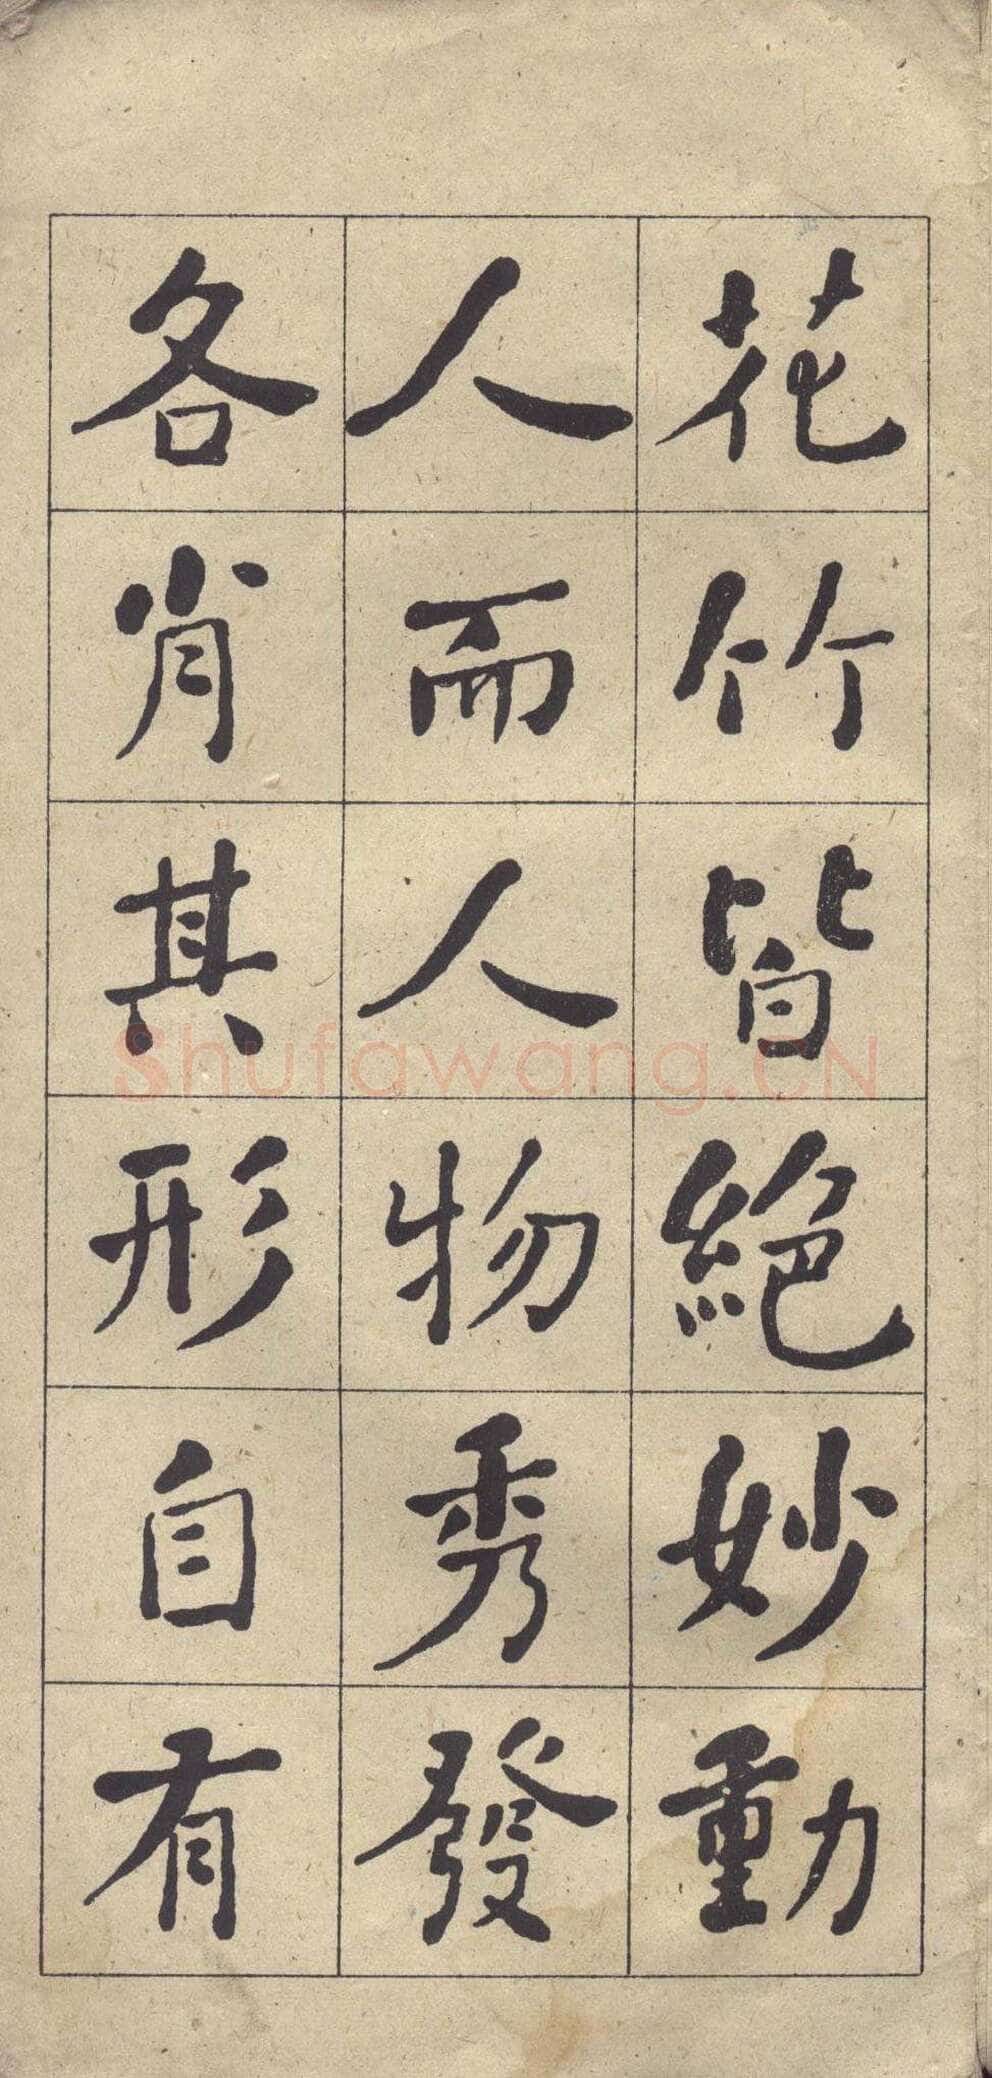 花竹皆絕妙動
人而人物秀發
各肖其形自有
Shufawang.CN